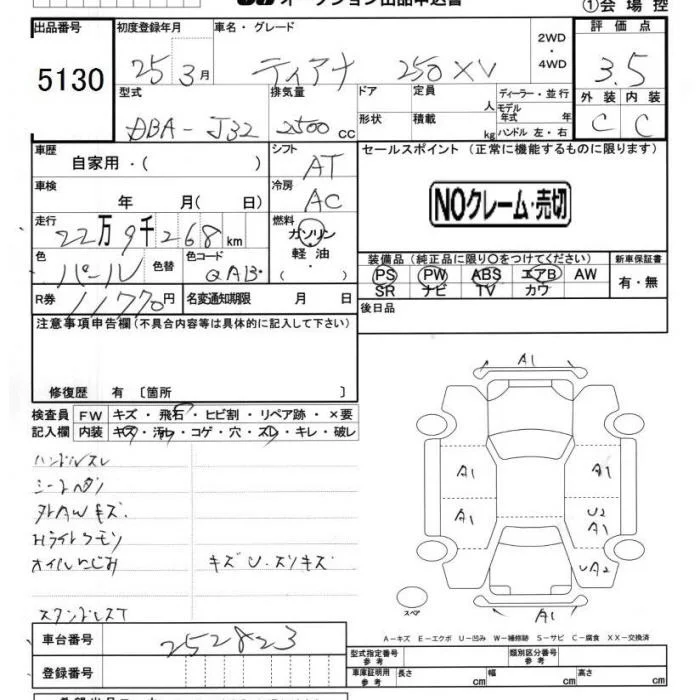 オークション出品申込書
①会場控
出品番号
5130
初度登録年月
25年3月
車名・グレード
ティアナ 250XV
2WD
・
4WD
評価点
3.5
外装 内装
C C
型式
DBA-J32
排気量
2500 cc
ドア
形状
定員
人
積載
kg
ディーラー・並行
モデル年式 年
ハンドル 左・右
車歴
自家用・( )
シフト
AT
セールスポイント(正常に機能するものに限ります)
NOクレーム・売切
車検
年 月( 日)
冷房
AC
走行
22万9千268km
燃料
ガソリン
・
軽油
・
( )
色
パール
色替
色コード
QAB
装備品(純正品に限り○をつけてください)
PS PW ABS エアB AW
SR ナビ TV カワ
新車保証書
有・無
R券 11770円
名変通知期限 月 日
後日品
注意事項申告欄(不具合内容等は具体的に記入して下さい)
修復歴 有〔箇所 〕
検査員記入欄
FW キズ・飛石・ヒビ割・リペア跡・×要
内装 キズ・汚レ・コゲ・穴・スレ・キレ・破レ
ハンドルスレ
シートヘタリ
外AWキズ
Hライトクモリ
オイルにじみ
キズU・スリキズ
A1
A1
A1
A1
U2
A1
UA2
A1
スペア
A-キズ E-エクボ U-凹み W-補修跡 S-サビ C-腐食 XX-交換済
車台番号
252823
登録番号
型式指定番号
参考
類別区分番号
参考
車庫証明用
参考
長さ cm 幅 cm 高さ cm